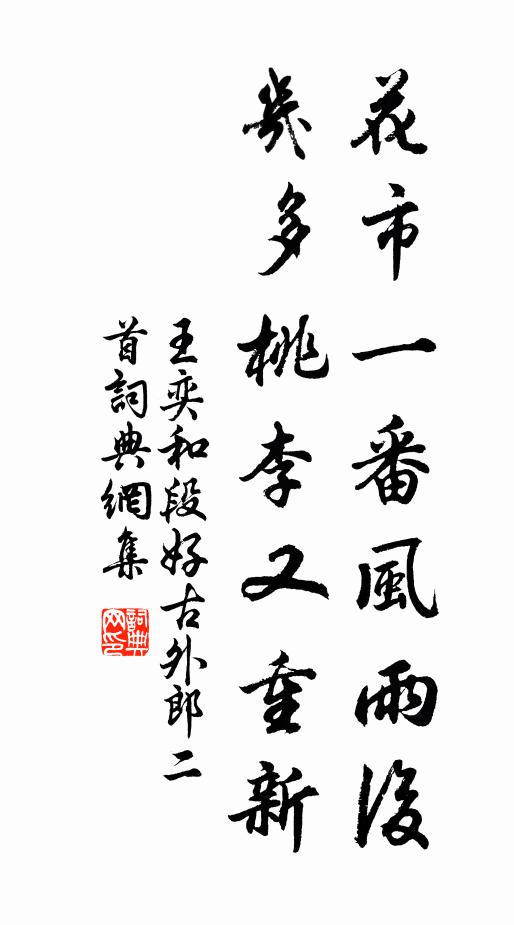 花市一番風雨後
幾多桃李又重新
王奕和段好古外郎二
首詞典網集
詞典
网印